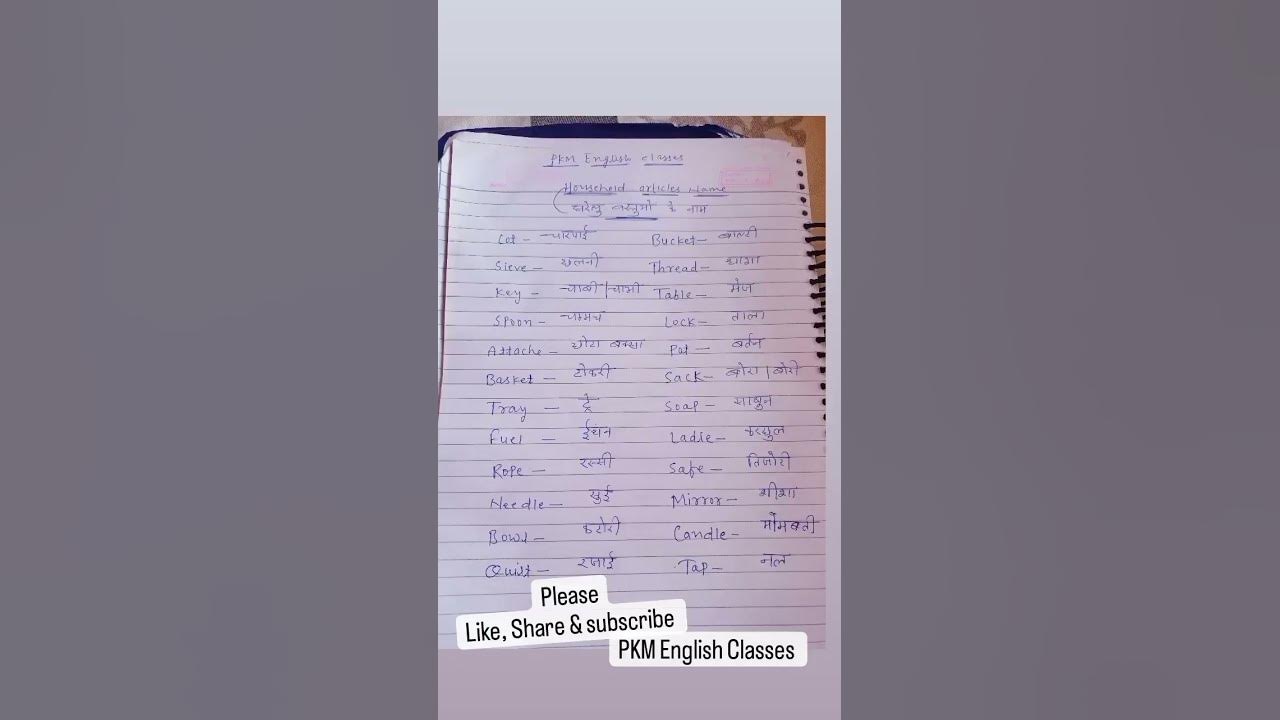 PKM English classes
Household articles Name
घरेलु वस्तुओं के नाम
Cot - चारपाई Bucket - बाल्टी
Sieve - छलनी Thread - धागा
Key - चाबी | चाभी Table - मेज
Spoon - चम्मच Lock - ताला
Attache - छोटा बक्सा Pot - बर्तन
Basket - टोकरी Sack - बोरा | बोरी
Tray - ट्रे Soap - साबुन
Fuel - ईंधन Ladle - करछुल
Rope - रस्सी Safe - तिजोरी
Needle - सुई Mirror - शीशा
Bowl - कटोरी Candle - मोमबत्ती
Quilt - रजाई Tap - नल
Please
Like, Share & subscribe
PKM English Classes